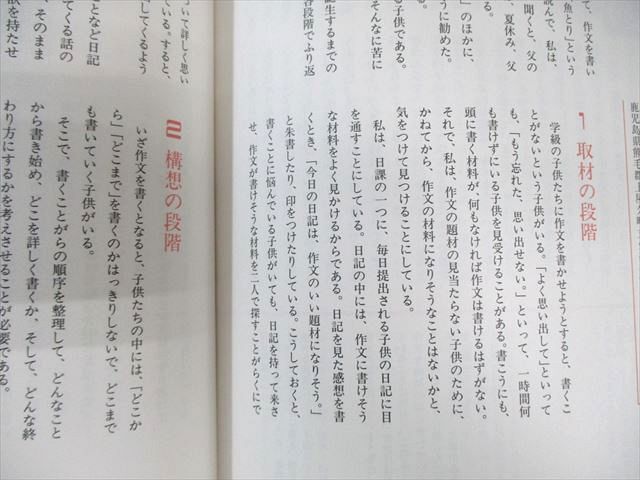 鹿児島県熊毛郡
て、作文を書い
魚とり」という
読んで、私は、
聞くと、父の
、夏休み、父
」のほかに、
うに勧めた。
そんなに苦に
子供である。
誕生するまでの
各段階でふり返
1 取材の段階
学級の子供たちに作文を書かせようとすると、書くこ
とがないという子供がいる。「よく思い出して」といって
も、「もう忘れた、思い出せない。」といって、一時間何
も書けずにいる子供を見受けることがある。書こうにも、
頭に書く材料が、何もなければ作文は書けるはずがない。
それで、私は、作文の題材の見当たらない子供のために、
かねてから、作文の材料になりそうなことはないかと、
気をつけて見つけることにしている。
私は、日課の一つに、毎日提出される子供の日記に目
を通すことにしている。日記の中には、作文に書けそう
な材料をよく見かけるからである。日記を見た感想を書
くとき、「今日の日記は、作文のいい題材になりそう。」
と朱書したり、印をつけたりしている。こうしておくと、
書くことに悩んでいる子供がいても、日記を持って来さ
せ、作文が書けそうな材料を二人で探すことがらくにで
ついて詳しく思い
ている。すると、
てくるよう
てくる話の
となど日記
、そのまま
欲を持たせ
2 構想の段階
いざ作文を書くとなると、子供たちの中には、「どこか
ら」「どこまで」を書くのかはっきりしないで、どこまで
も書いていく子供がいる。
そこで、書くことがらの順序を整理して、どんなこと
から書き始め、どこを詳しく書くか、そして、どんな終
わり方にするかを考えさせることが必要である。